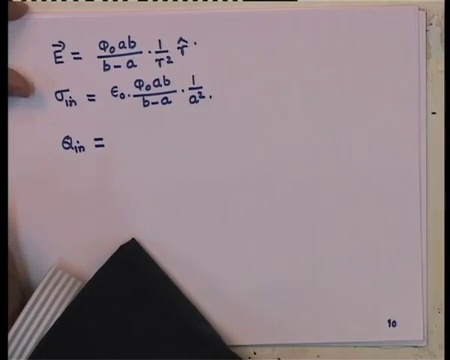 E⃗ = Φ₀ab / b-a · 1/r² r̂.
σin = ε₀. Φ₀ab / b-a · 1/a².
Qin =
10